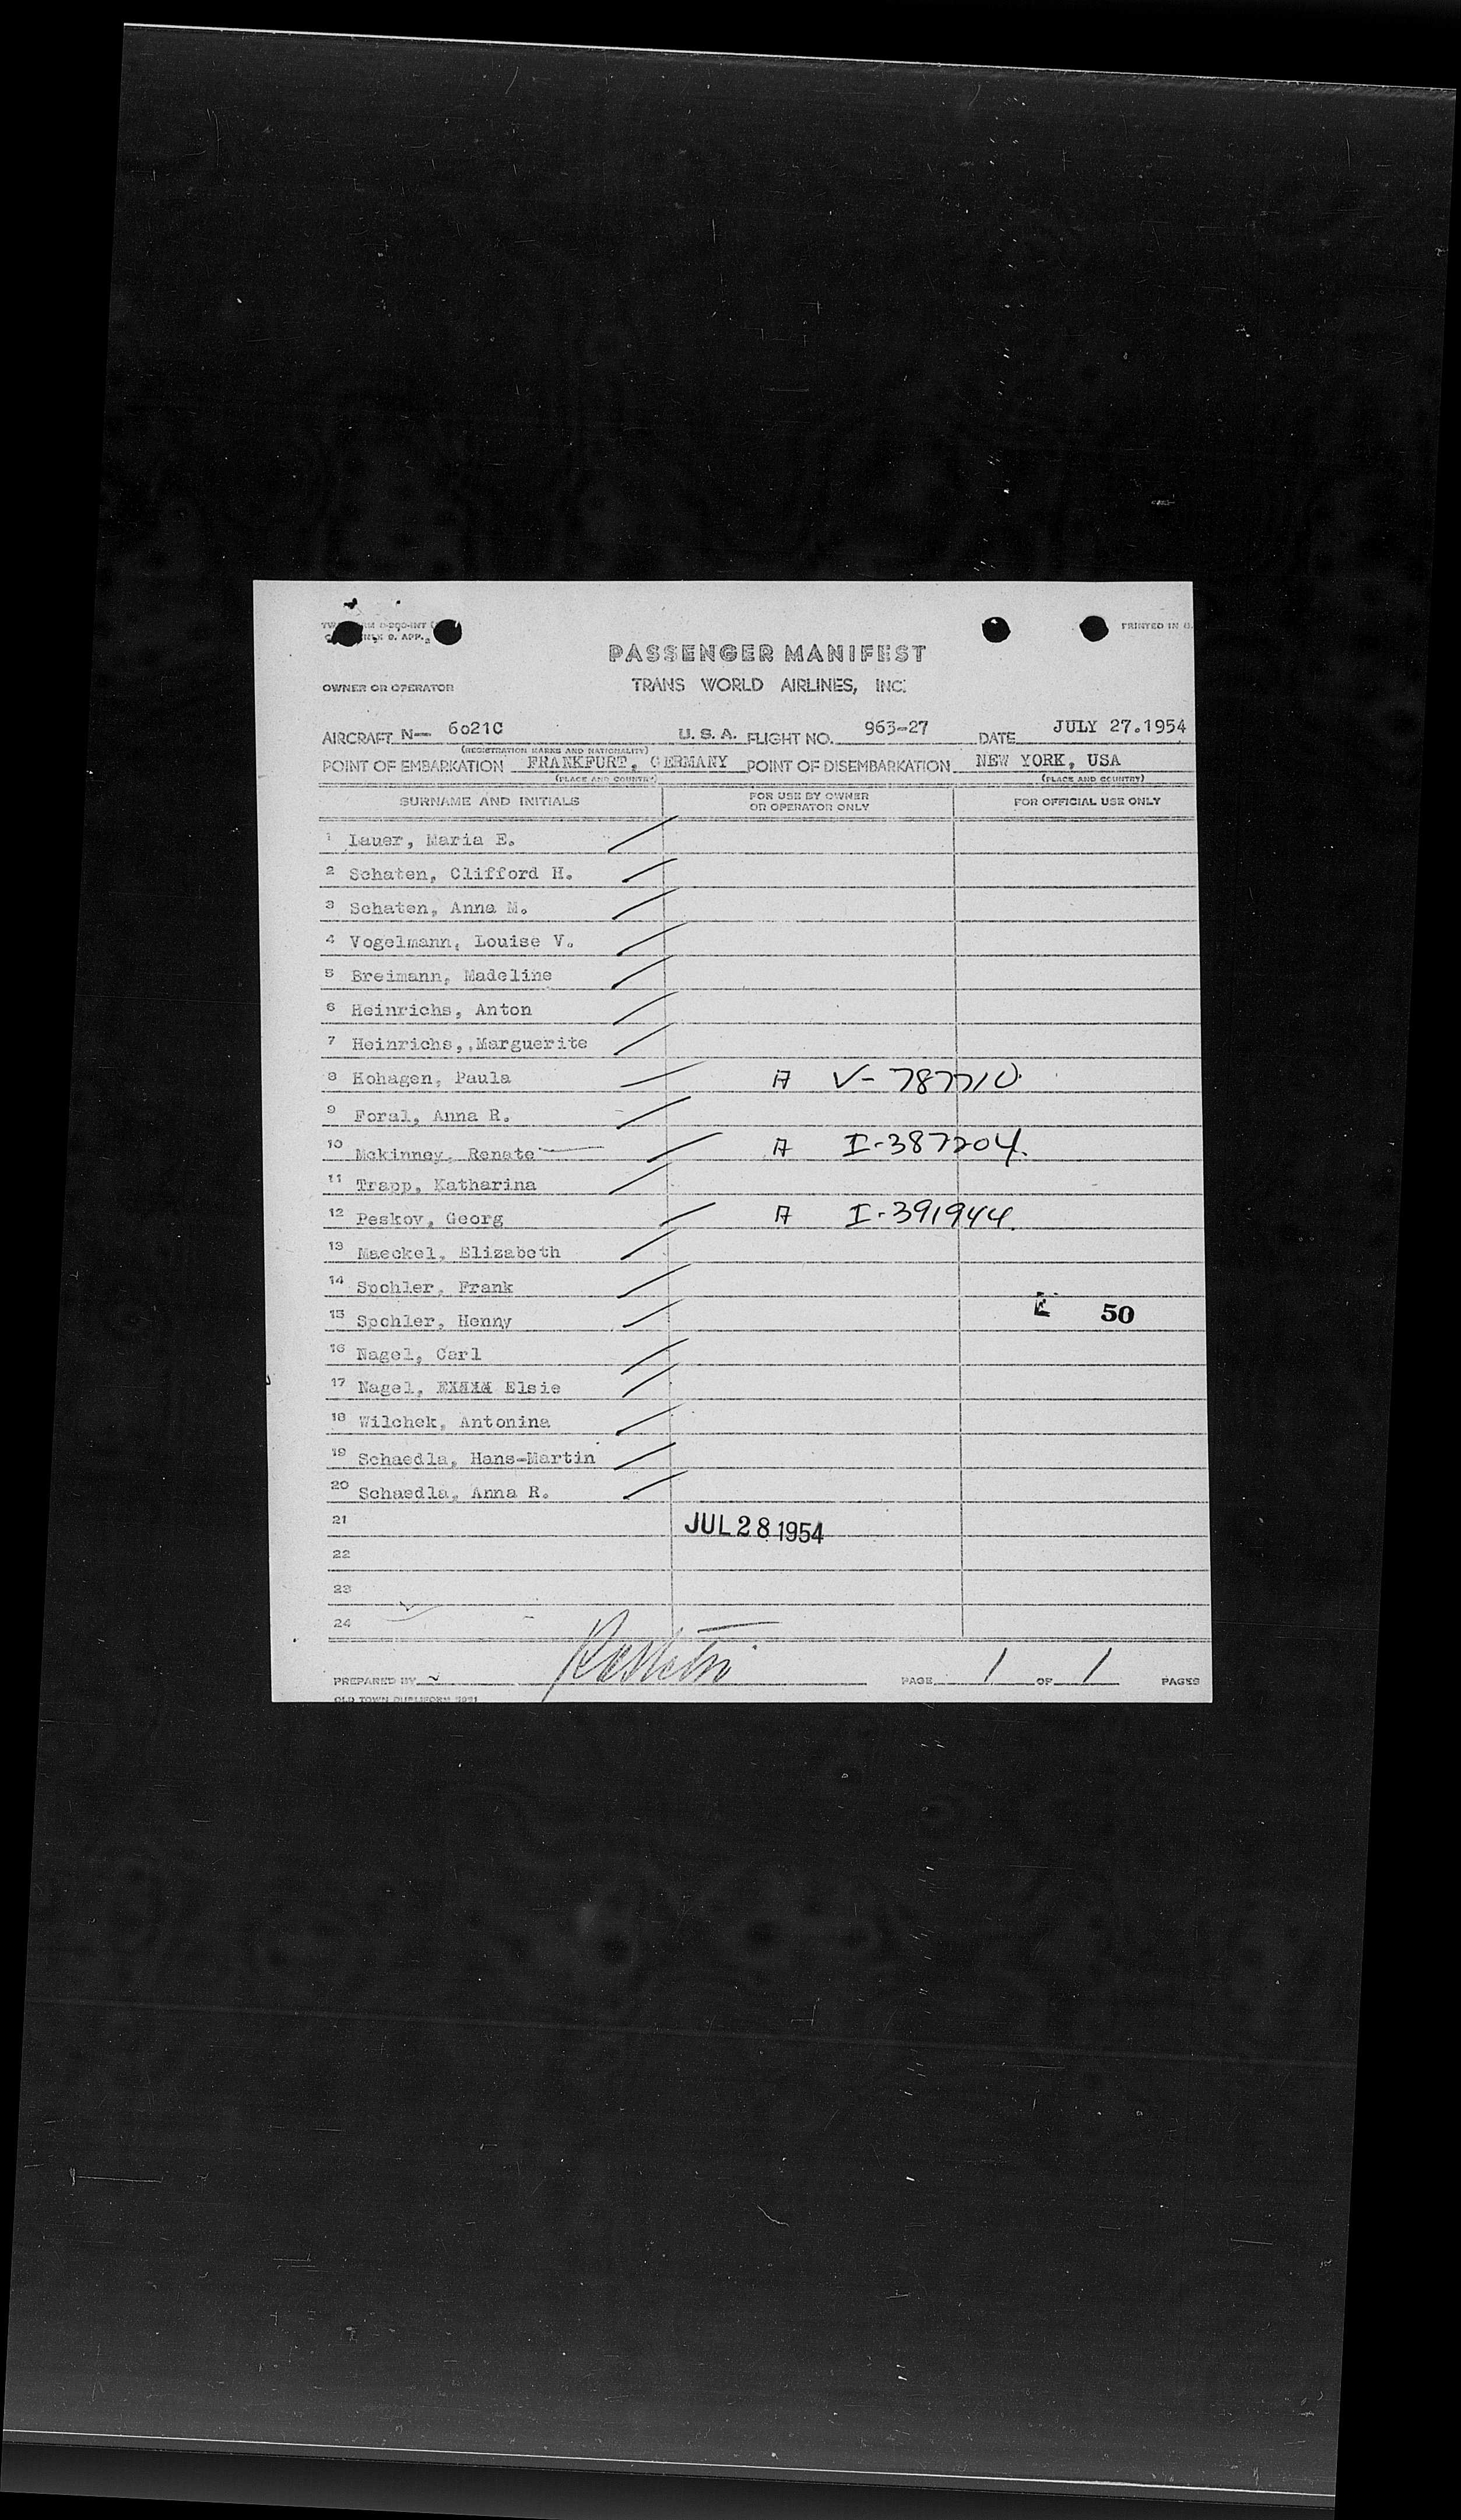 PRINTED IN
APP.
PASSENGER MANIFEST
OWNER OR OPERATOR TRANS WORLD AIRLINES, INC.
AIRCRAFT N— 6021C U. S. A. FLIGHT NO. 963-27 DATE JULY 27.1954
(REGISTRATION MARKS AND NATIONALITY)
POINT OF EMBARKATION FRANKFURT, GERMANY POINT OF DISEMBARKATION NEW YORK, USA
(PLACE AND COUNTRY) (PLACE AND COUNTRY)
SURNAME AND INITIALS FOR USE BY OWNER OR OPERATOR ONLY FOR OFFICIAL USE ONLY
1 Lauer, Maria E.
2 Schaten, Clifford H.
3 Schaten, Anna M.
4 Vogelmann, Louise V.
5 Breimann, Madeline
6 Heinrichs, Anton
7 Heinrichs, Marguerite
8 Hohagen, Paula A V-787710
9 Foral, Anna R.
10 Mckinney, Renate A I-387204
11 Trapp, Katharina
12 Peskov, Georg A I-391944
13 Maeckel, Elizabeth
14 Spohler, Frank
15 Spohler, Henny E 50
16 Nagel, Carl
17 Nagel, Elsie
18 Wilchek, Antonina
19 Schaedla, Hans-Martin
20 Schaedla, Anna R.
21 JUL 28 1954
22
23
24
PREPARED BY PAGE 1 OF 1 PAGES
OLD TOWN DUPLIFORM